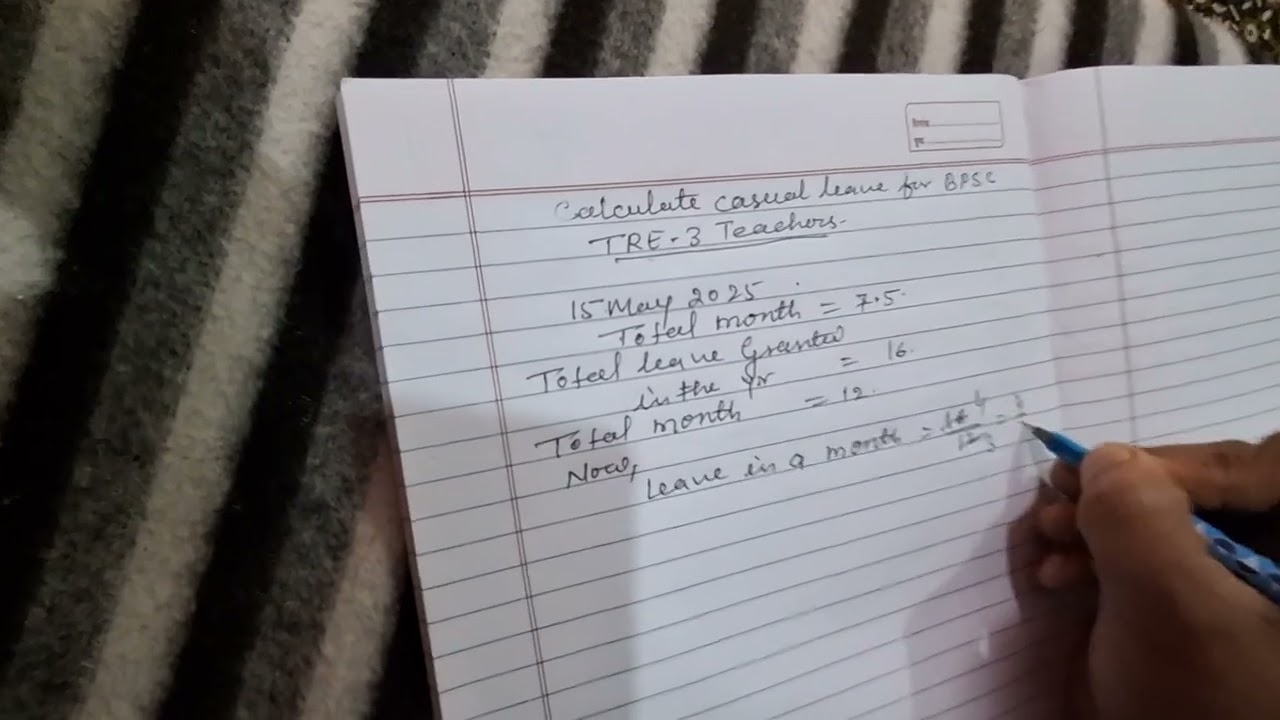 Calculate casual leave for BPSC
TRE-3 Teachers.
15 May 2025
Total month = 7.5.
Total leave Granted
in the yr = 16.
Total month = 12.
Now,
leave in a month = 16 4
12 3 =